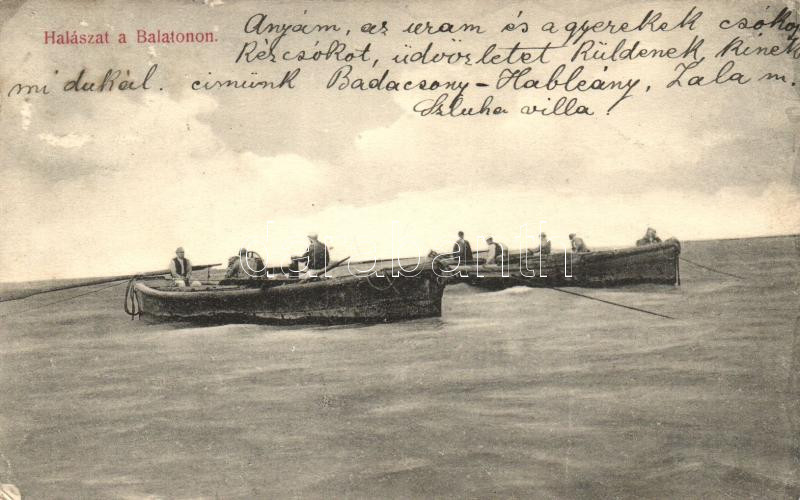 Halászat a Balatonon.
Anyám, az uram és a gyerekek csókol
Kézcsókot, üdvözletet Küldenek Kinek
mi dukál. cimünk Badacsony-Hableány, Zala m.
Szluha villa.
darabanth